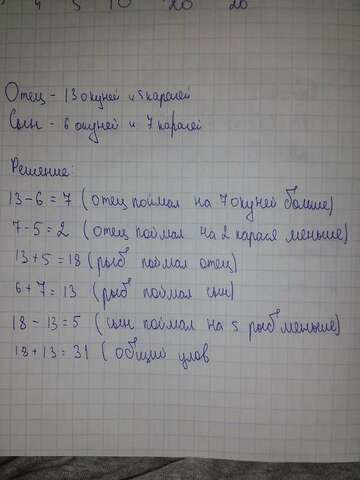 4 5 10 20 20
Отец - 13 окуней и 5 карасей
Сын - 6 окуней и 7 карасей
Решение:
13-6=7 (отец поймал на 7 окуней больше)
7-5=2 (отец поймал на 2 карася меньше)
13+5=18 (рыб поймал отец)
6+7=13 (рыб поймал сын)
18-13=5 (сын поймал на 5 рыб меньше)
18+13=31 (общий улов